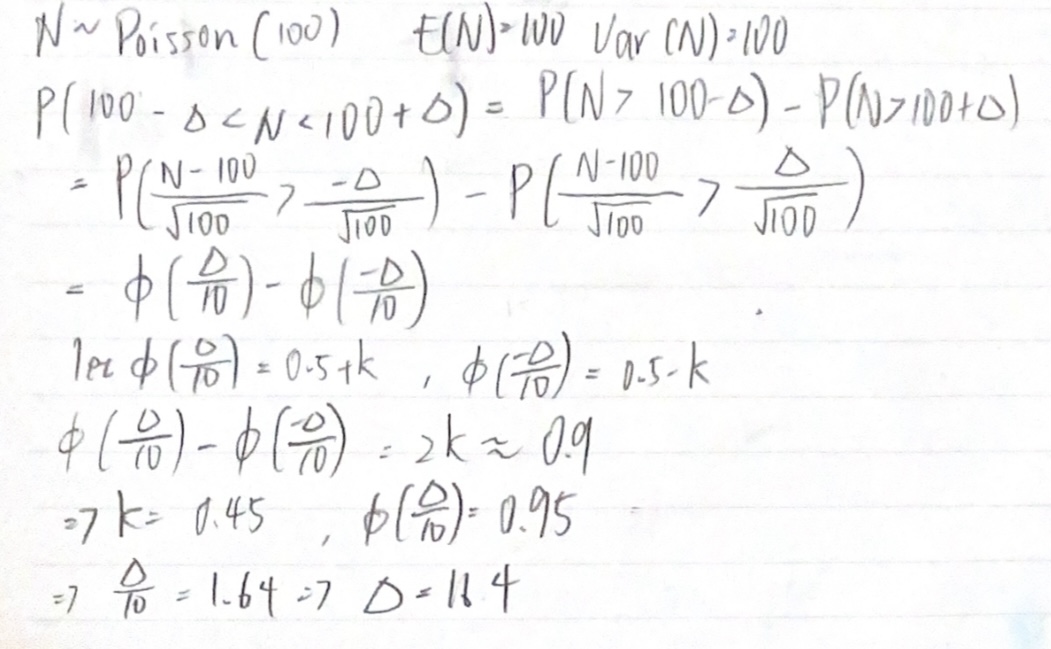 N ~ Poisson (100) E(N)=100 Var (N)=100
P(100 - Δ < N < 100 + Δ) = P(N > 100-Δ) - P(N > 100+Δ)
= P( (N-100)/√100 > -Δ/√100 ) - P( (N-100)/√100 > Δ/√100 )
= ϕ(Δ/10) - ϕ(-Δ/10)
let ϕ(Δ/10) = 0.5+k , ϕ(-Δ/10) = 0.5-k
ϕ(Δ/10) - ϕ(-Δ/10) = 2k ≈ 0.9
=> k = 0.45 , ϕ(Δ/10) = 0.95
=> Δ/10 = 1.64 => Δ = 16.4